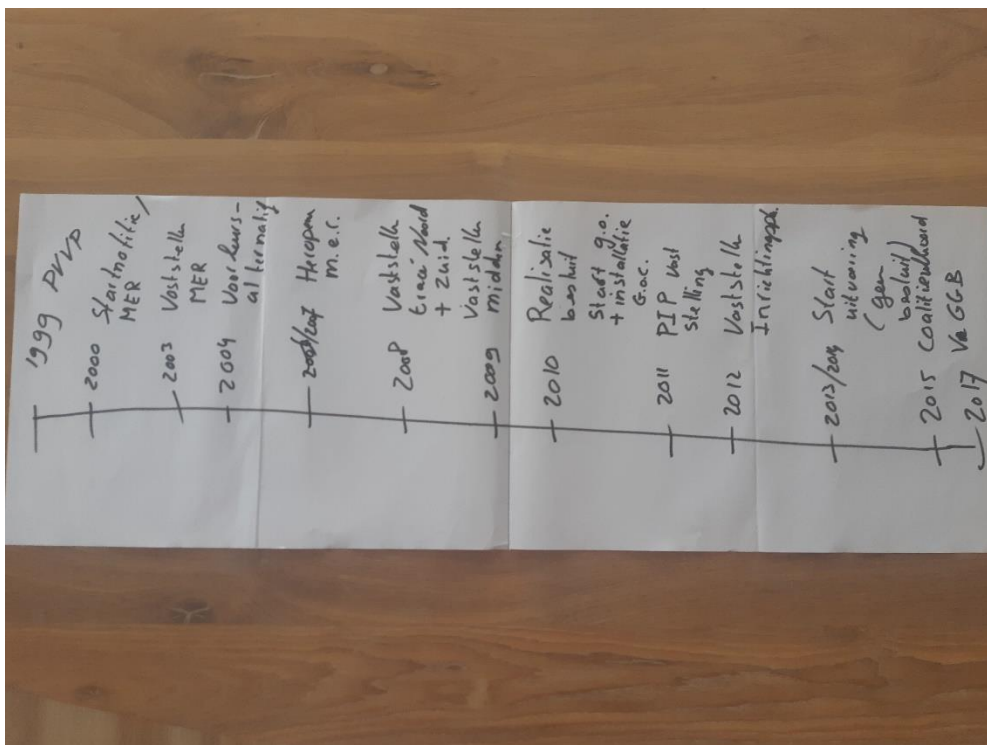 1999 PVVP
2000 Startnotitie/
MER
2003 Vaststelln
MER
2004 Voorkeurs-
alternatif
Heropen
m.e.r.
2008 Vaststelln
tracé Noord
+ Zuid.
2009 Vaststelln
midden
2010 Realisatie
besluit
Start g.o.
+ installatie
G.a.c.
2011 PIP vast
stelling
2012 Vaststelln
2013/2014 Start
uitvoering
(geen
besluit)
2015 Coalitieakkoord
2017
GGB